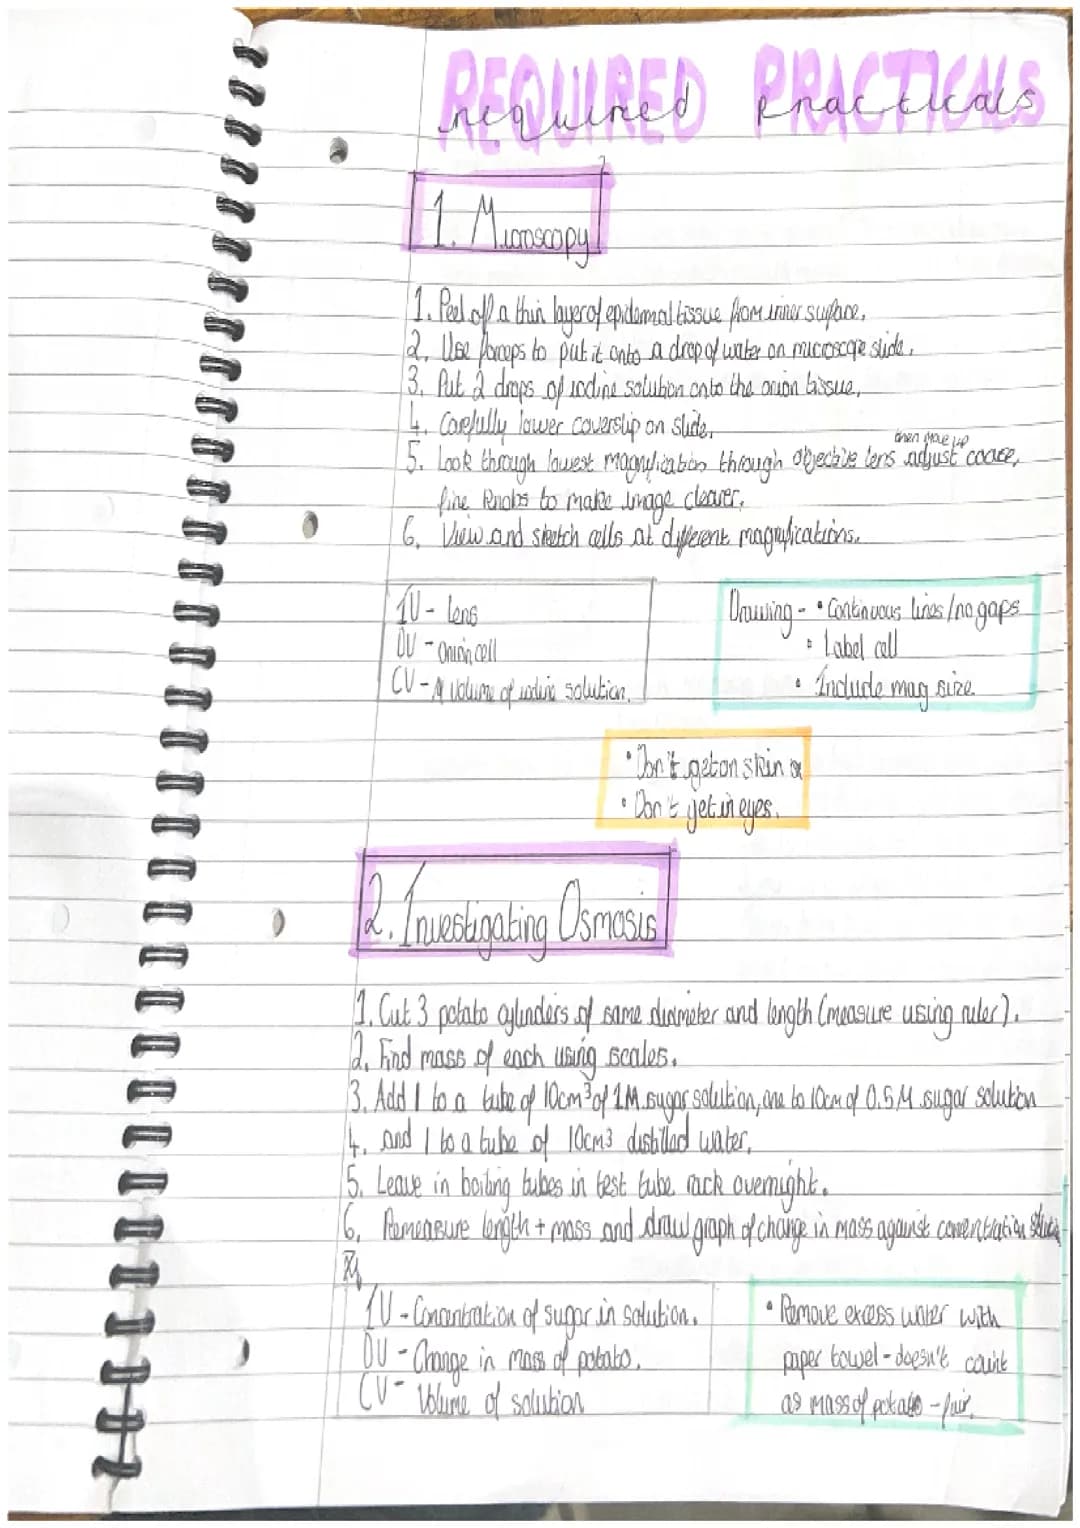 REQUIRED PRACTICALS
required Practicals
1. Microscopy
1. Peel off a thin layer of epidermal tissue from inner surface.
2. Use forceps to put it onto a drop of water on microscope slide.
3. Put 2 drops of iodine solution onto the onion tissue.
4. Carefully lower coverslip on slide.
then move up
5. Look through lowest magnification through objective lens adjust coarse,
fine knobs to make image clearer.
6. View and sketch cells at different magnifications.
IV - lens
DV - onion cell
CV - volume of iodine solution.
Drawing - • Continuous lines/no gaps
• Label cell
• Include mag size
• Don't get on skin or
• Don't get in eyes.
2. Investigating Osmosis
1. Cut 3 potato cylinders of same diameter and length (measure using ruler).
2. Find mass of each using scales.
3. Add 1 to a tube of 10cm³ of 1M sugar solution, one to 10cm of 0.5M sugar solution
4. and 1 to a tube of 10cm3 distilled water.
5. Leave in boiling tubes in test tube rack overnight.
6. Remeasure length + mass and draw graph of change in mass against concentration
IV - Concentration of sugar in solution.
DV - Change in mass of potato.
CV - Volume of solution
• Remove excess water with
paper towel - doesn't count
as mass of potato - fair.